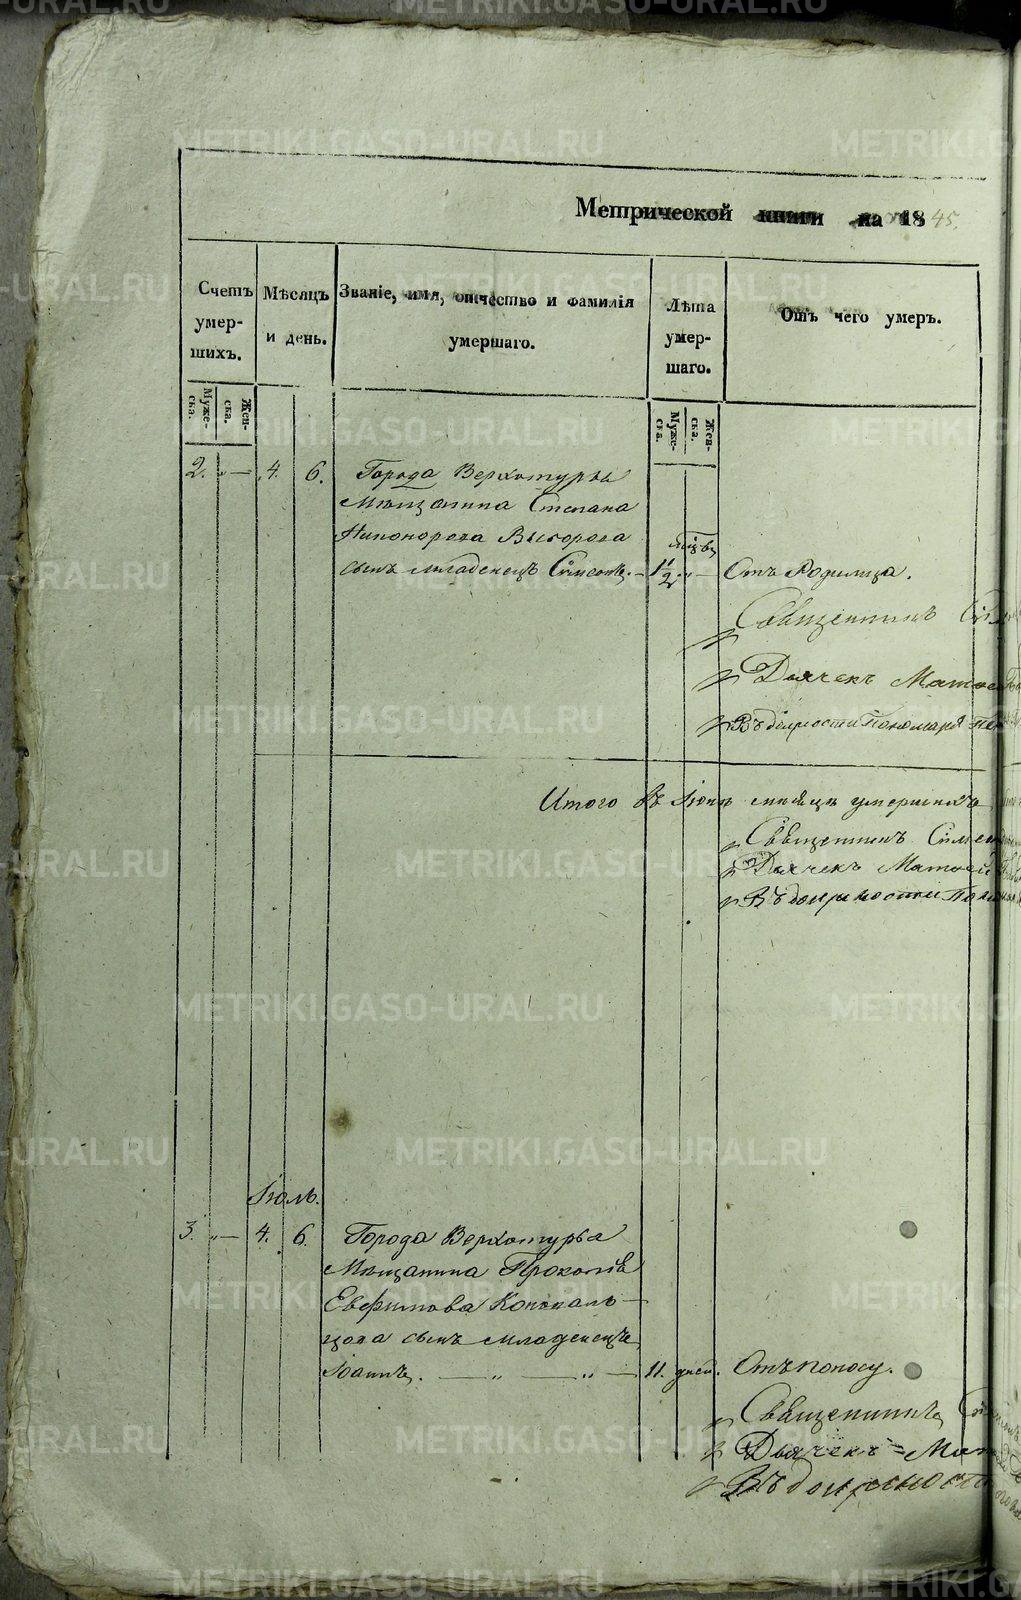 METRIKI.GASO-URAL.RU
Метрической книги на 1845.
Счетъ умер-шихъ.
Мѣсяцъ и день.
Званіе, имя, отчество и фамилія умершаго.
Лѣта умер-шаго.
Отъ чего умеръ.
Муже-ска.
Жен-ска.
Муже-ска.
Жен-ска.
2. „ — 4. 6. Города Верхотурья
Мѣщанина Степана
Никонорова
сынъ младенецъ Сѵмеонъ. — 1 1/2 „ — Отъ Родимца.
Священникъ
Дьячекъ
Въ должности Пономаря
Итого въ Іюнѣ мѣсяцѣ умершихъ
Священникъ
Дьячекъ Матвей
Въ должности
Іюль.
3. „ — 4. 6. Города Верхотурья
Мѣщанина Прокопія
Евфимова
сынъ младенецъ
Іоаннъ. — „ — „ — 11. дней. Отъ поносу.
Священникъ
Дьячекъ
Въ должност